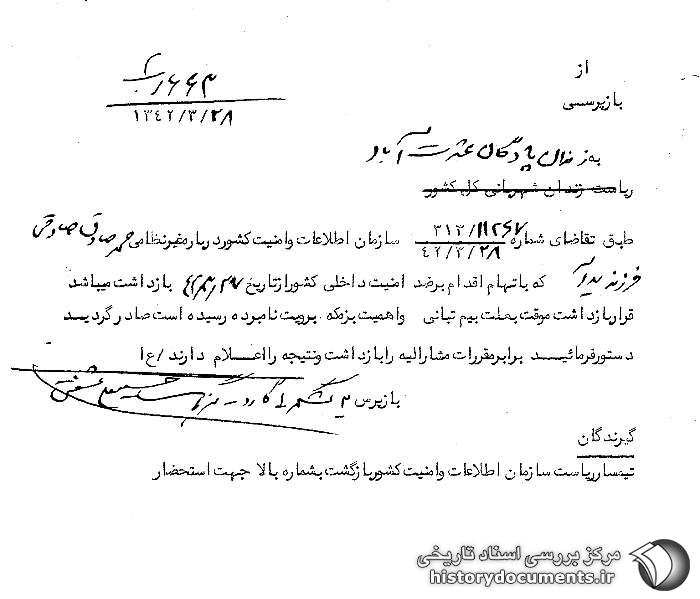 از
بازپرسی
۱۳۴۲/۳/۲۸
به زندان پادگان عشرت آباد
ریاست زندان شهربانی کل کشور
طبق تقاضای شماره ۳۱۲/۱۱۲۶۷ ۴۲/۳/۲۸ سازمان اطلاعات وامنیت کشور درباره غیرنظامی محمد صادق صادقی
فرزند یداله که باتهام اقدام برضد امنیت داخلی کشور از تاریخ بازداشت میباشد
قرار بازداشت موقت بعلت بیم تبانی واهمیت بزه که برویت نامبرده رسیده است صادر گردید
دستور فرمائید برابر مقررات مشارالیه را بازداشت ونتیجه را اعلام دارند /ع ا
بازپرس لشگر ۱ گارد
گیرندگان
تیمسار ریاست سازمان اطلاعات وامنیت کشور بازگشت بشماره بالا جهت استحضار
مرکز بررسی اسناد تاریخی
historydocuments.ir